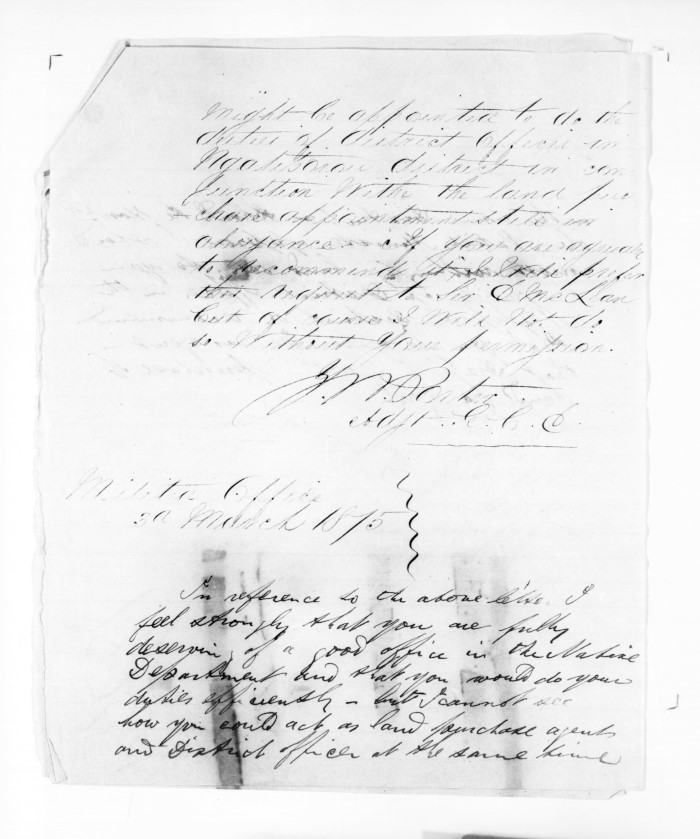 might be appointed to do the
duties of District Officer in
Ngatiporou district in con
junction with the land pur
chase appointment still in
abeyance – If you are agreeable
to recommend it I will prefer
this request to Sir D McLean
but of course I will not do
so without your permission.
J. W. Porter
Adjt. E. C. C.
Militia Office
3d March 1875
In reference to the above letter. I
feel strongly that you are fully
deserving of a good office in the Native
Department and that you would do your
duties efficiently – but I cannot see
how you could act as land purchase agents
and District officer at the same time